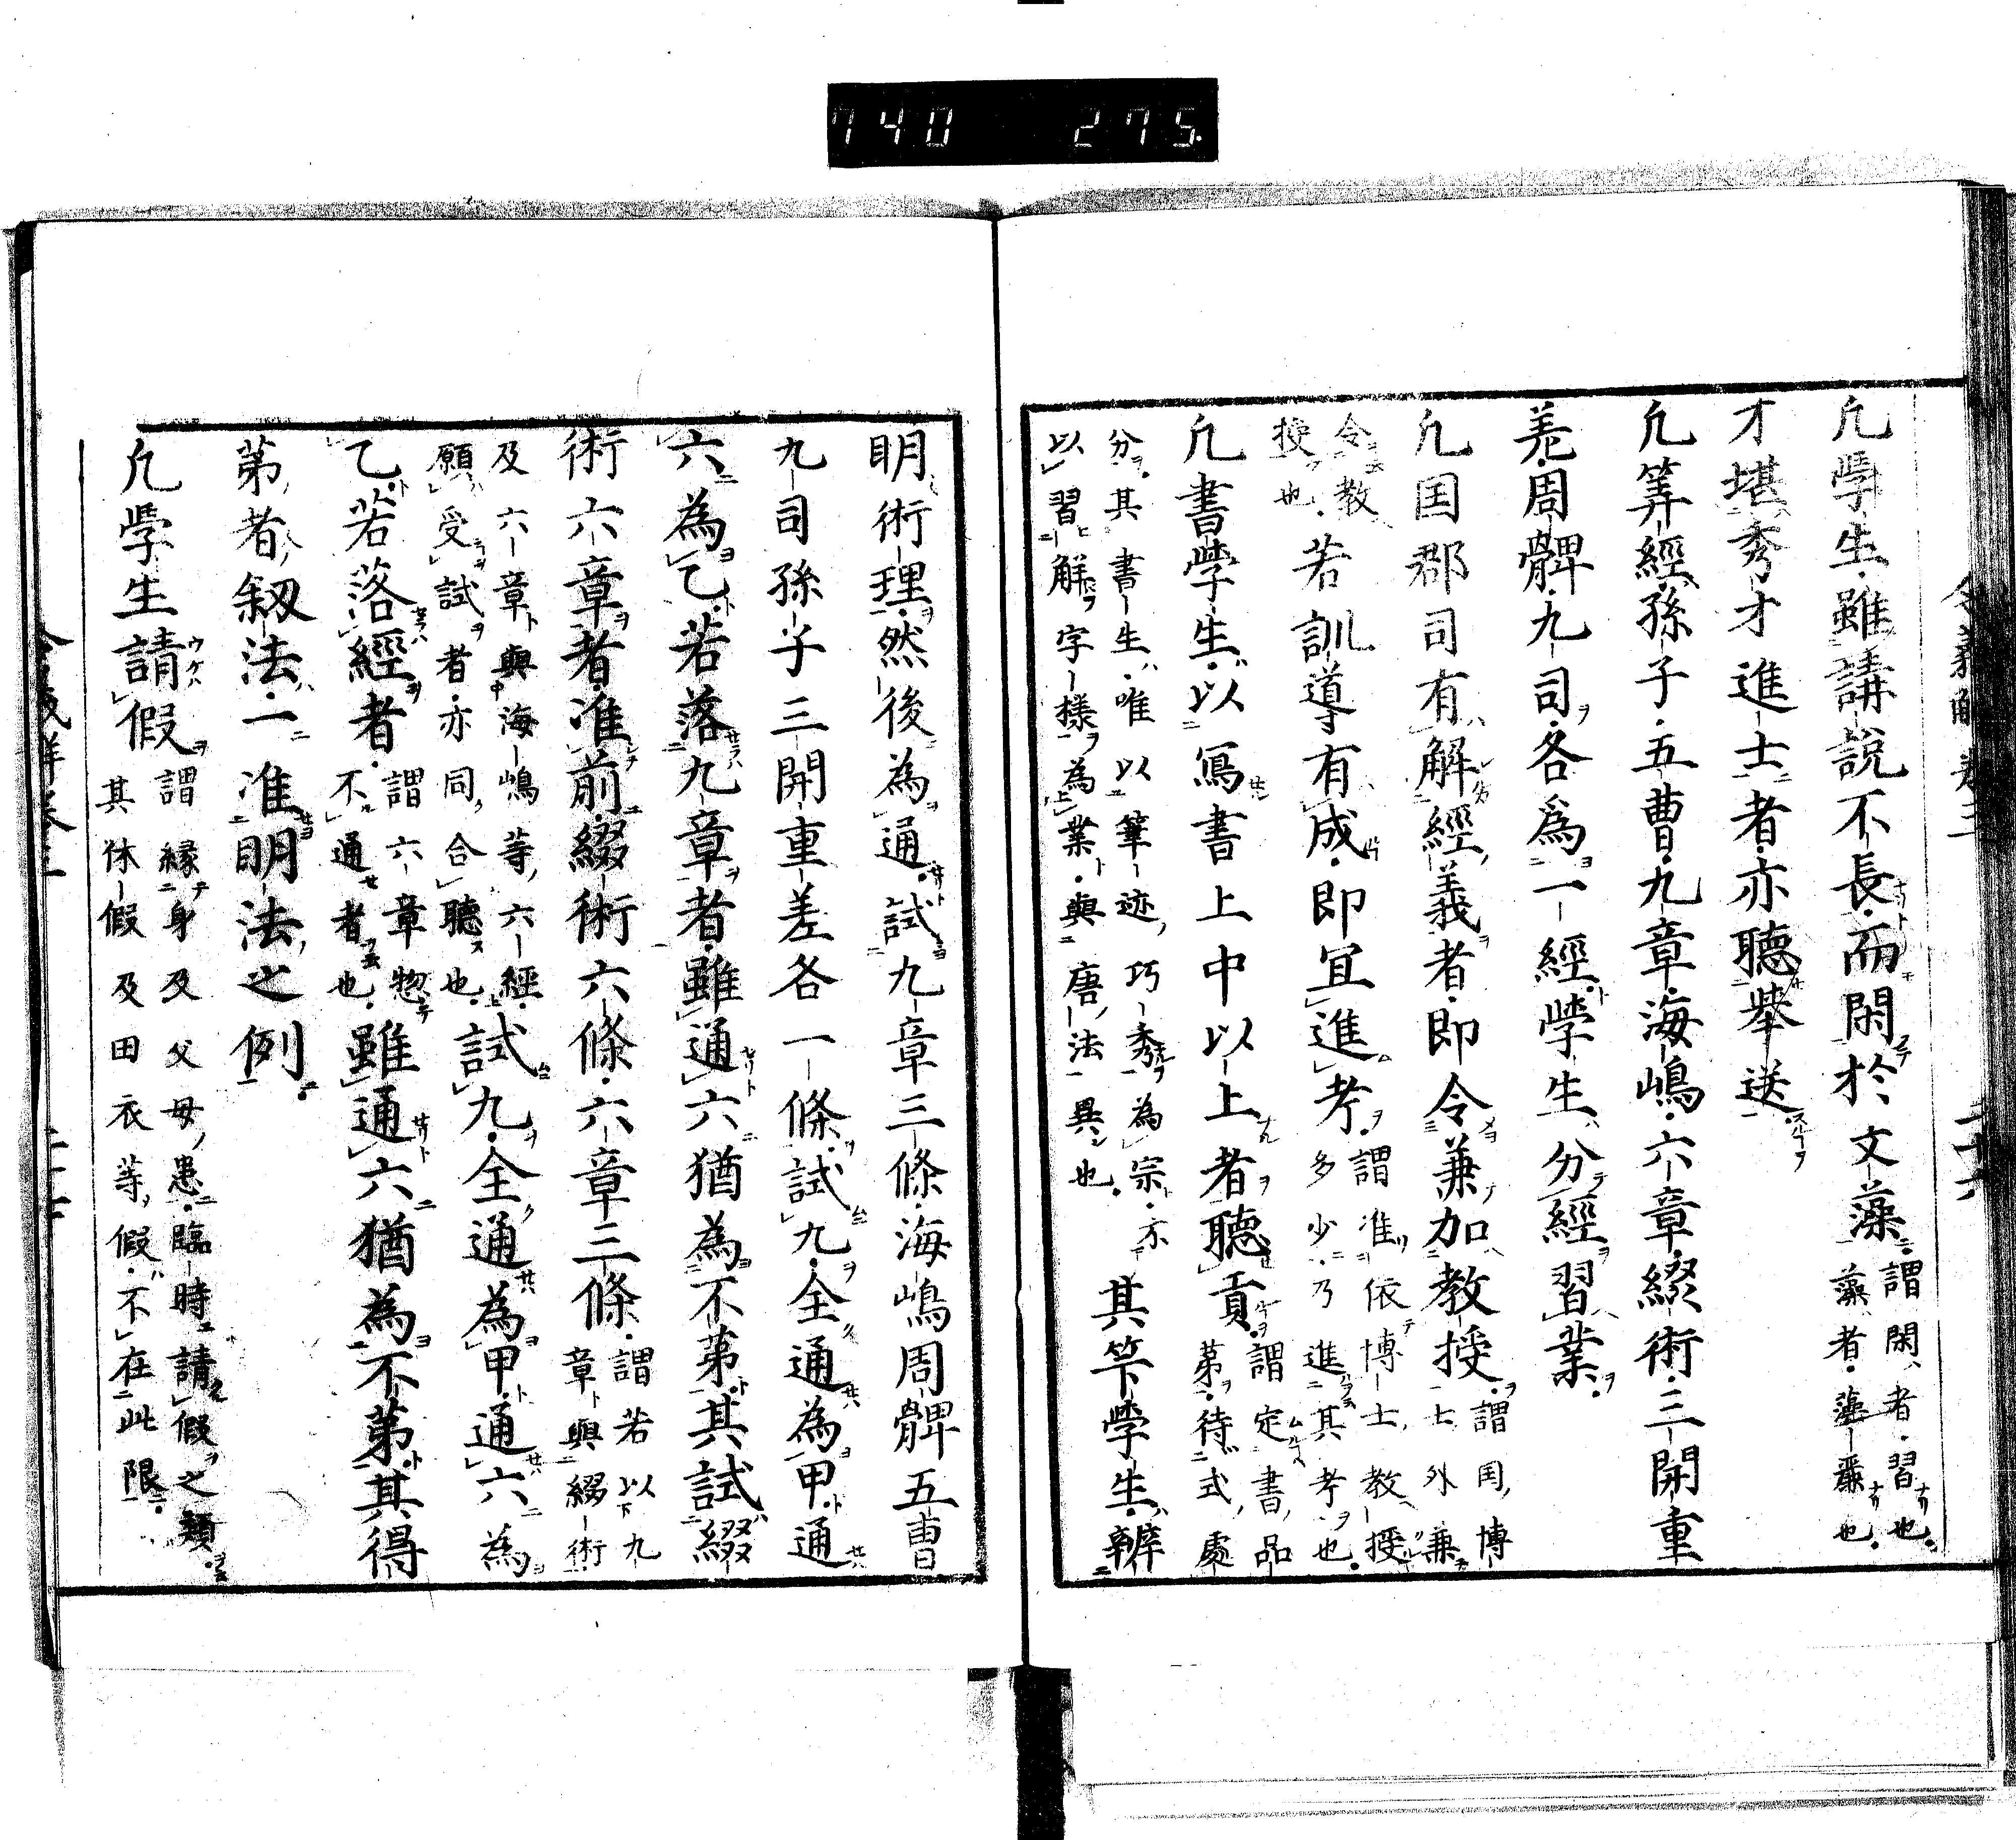 740 275.
凢學生雖講説不長而閑於文藻謂閑者習也藻者藻麗也
才堪秀才進士者亦聽舉送
凢筭經孫子五曹九章海嶋六章綴術三開重
差周髀九司各爲一經學生分經習業
凢国郡司有解經義者即令兼加教授謂国博士外兼
令教授也若訓導有成即宜進考謂准依博士教授多少乃進其考也
凢書學生以寫書上中以上者聽貢謂定書品第待式處
分其書生唯以筆迹巧秀為宗不以習解字様為業與唐法異也其筭學生辨
明術理然後為通試九章三條海嶋周髀五曹
九司孫子三開重差各一條試九全通為甲通
六為乙若落九章者雖通六猶為不第其試綴
術六章者准前綴術六條六章三條謂若以九章與綴術
及六章與海嶋等六經願受試者亦同合聽也試九全通為甲通六為
乙若落經者謂六章惣不通者也雖通六猶為不第其得
第者叙法一准明法之例
凢學生請假謂縁身及父母患臨時請假之類其休假及田衣等假不在此限